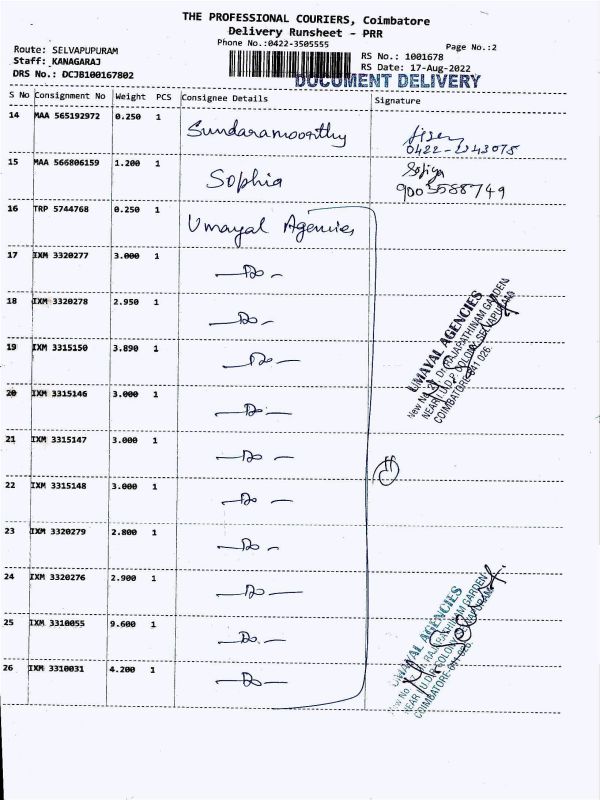 THE PROFESSIONAL COURIERS, Coimbatore
Delivery Runsheet - PRR
Phone No.:0422-3505555
Page No.:2
Route: SELVAPUPURAM
Staff: KANAGARAJ
DRS No.: DCJB100167802
RS No.: 1001678
RS Date: 17-Aug-2022
DOCUMENT DELIVERY
S No Consignment No Weight PCS Consignee Details Signature
14 MAA 565192972 0.250 1 Sundaramoorthy
15 MAA 566806159 1.200 1 Sophia Sofiya
9003588749
16 TRP 5744768 0.250 1 Umayal Agencies
17 IXM 3320277 3.000 1 -Do-
18 IXM 3320278 2.950 1 -Do-
19 IXM 3315150 3.890 1 -Do-
20 IXM 3315146 3.000 1 -Do-
21 IXM 3315147 3.000 1 -Do-
22 IXM 3315148 3.000 1 -Do-
23 IXM 3320279 2.800 1 -Do-
24 IXM 3320276 2.900 1 -Do-
25 IXM 3310055 9.600 1 -Do-
26 IXM 3310031 4.200 1 -Do-
UMAYAL AGENCIES
New No. Dr. RAJARATHINAM GARDEN
NEAR I.U.D.P. COLONY, SELVAPURAM
COIMBATORE-641 026.
11
UMAYAL AGENCIES
New No. RAJARATHINAM GARDEN
NEAR I.U.D.P. COLONY
COIMBATORE-641 026.